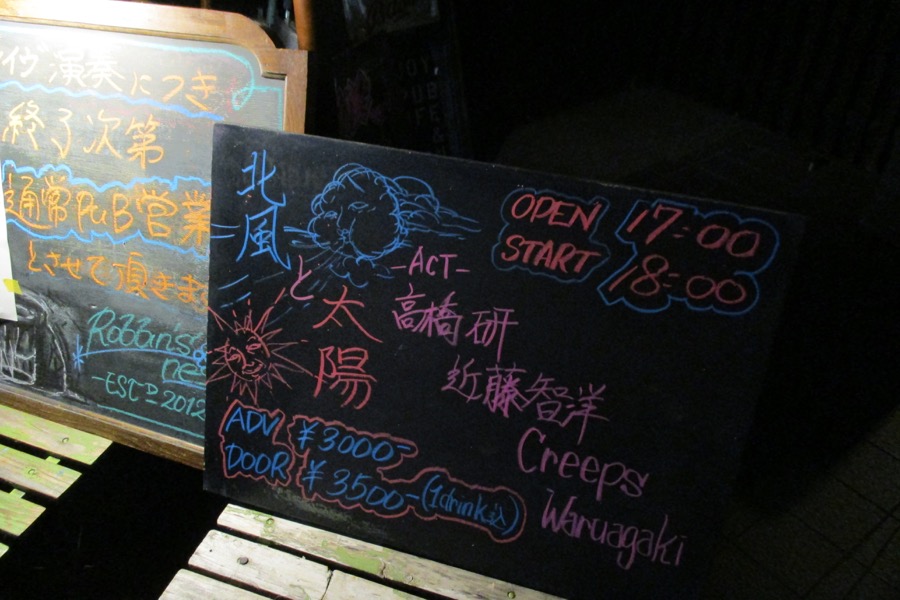 イヴ 演奏につき
終了次第
通常PUB営業
とさせて頂きま
Robbin's
nes
-ESTD 2012
北風
と
太陽
OPEN 17:00
START 18:00
-ACT-
高橋 研
近藤智洋
Creeps
Waruagaki
ADV ¥3000-
DOOR ¥3500-(1drink込)